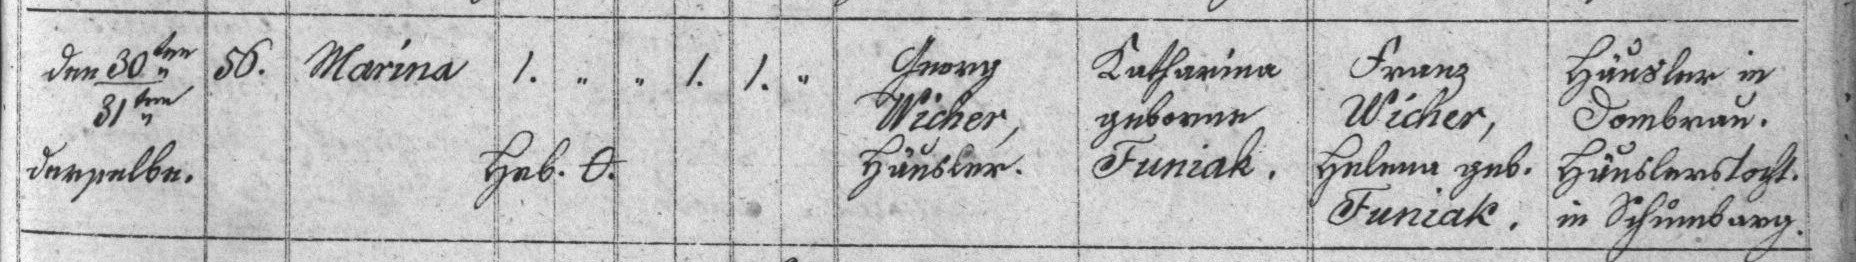 den 30ten 56. Marina 1. " " 1. 1. " Georg Katharina Franz Häusler in
31ten Wicher, geborene Wicher, Dombrau.
derselbe. Heb. O. Häusler. Funiak. Helena geb. Häuslerstocht.
Funiak. in Schumbarg.